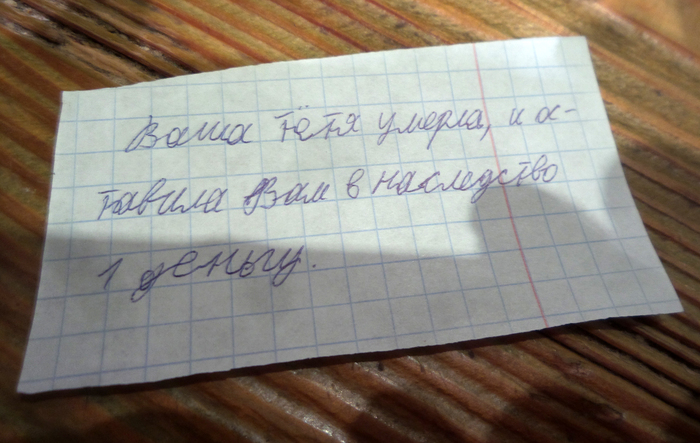 Ваша тётя умерла, и а-
тавила Вам в наследство
1 деньгу.